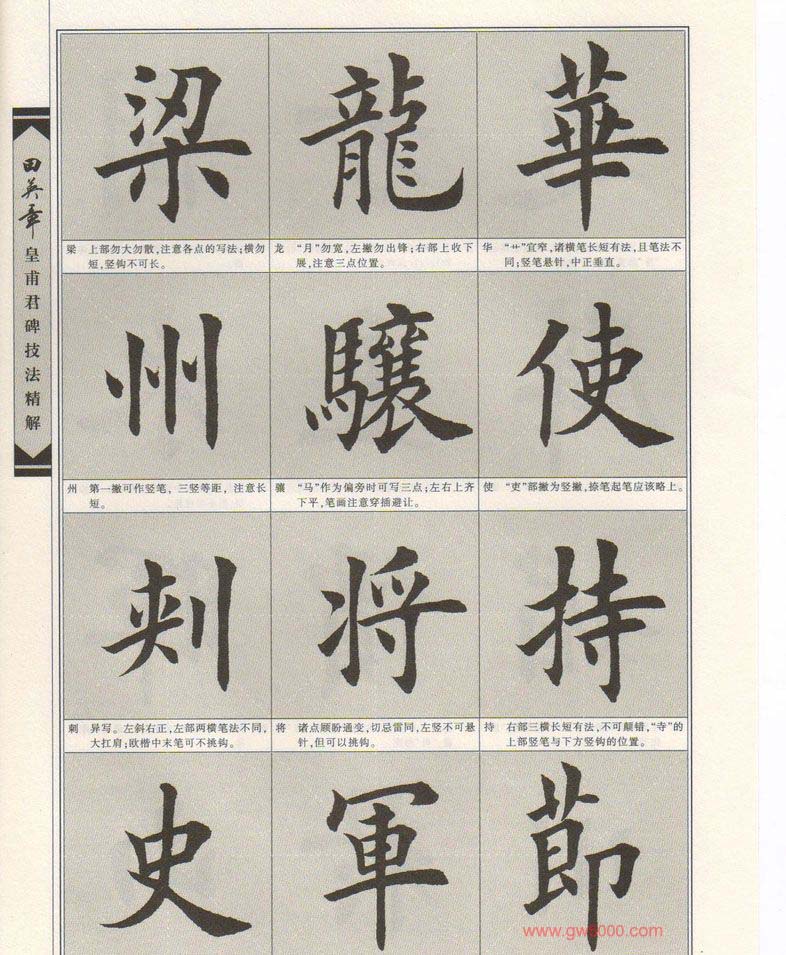 田英章
皇甫君碑技法精解
華
华 “艹”宜窄,诸横笔长短有法,且笔法不
同;竖笔悬针,中正垂直。
使
使 “吏”部撇为竖撇,捺笔起笔应该略上。
持
持 右部三横长短有法,不可颠错,“寺”的
上部竖笔与下方竖钩的位置。
節
龍
龙 “月”勿宽,左撇勿出锋;右部上收下
展,注意三点位置。
驤
骧 “马”作为偏旁时可写三点;左右上齐
下平,笔画注意穿插避让。
将
将 诸点顾盼通变,切忌雷同,左竖不可悬
针,但可以挑钩。
軍
梁
梁 上部勿大勿散,注意各点的写法;横勿
短,竖钩不可长。
州
州 第一撇可作竖笔，三竖等距，注意长
短。
刾
刺 异写。左斜右正,左部两横笔法不同,
大扛肩;欧楷中末笔可不挑钩。
史